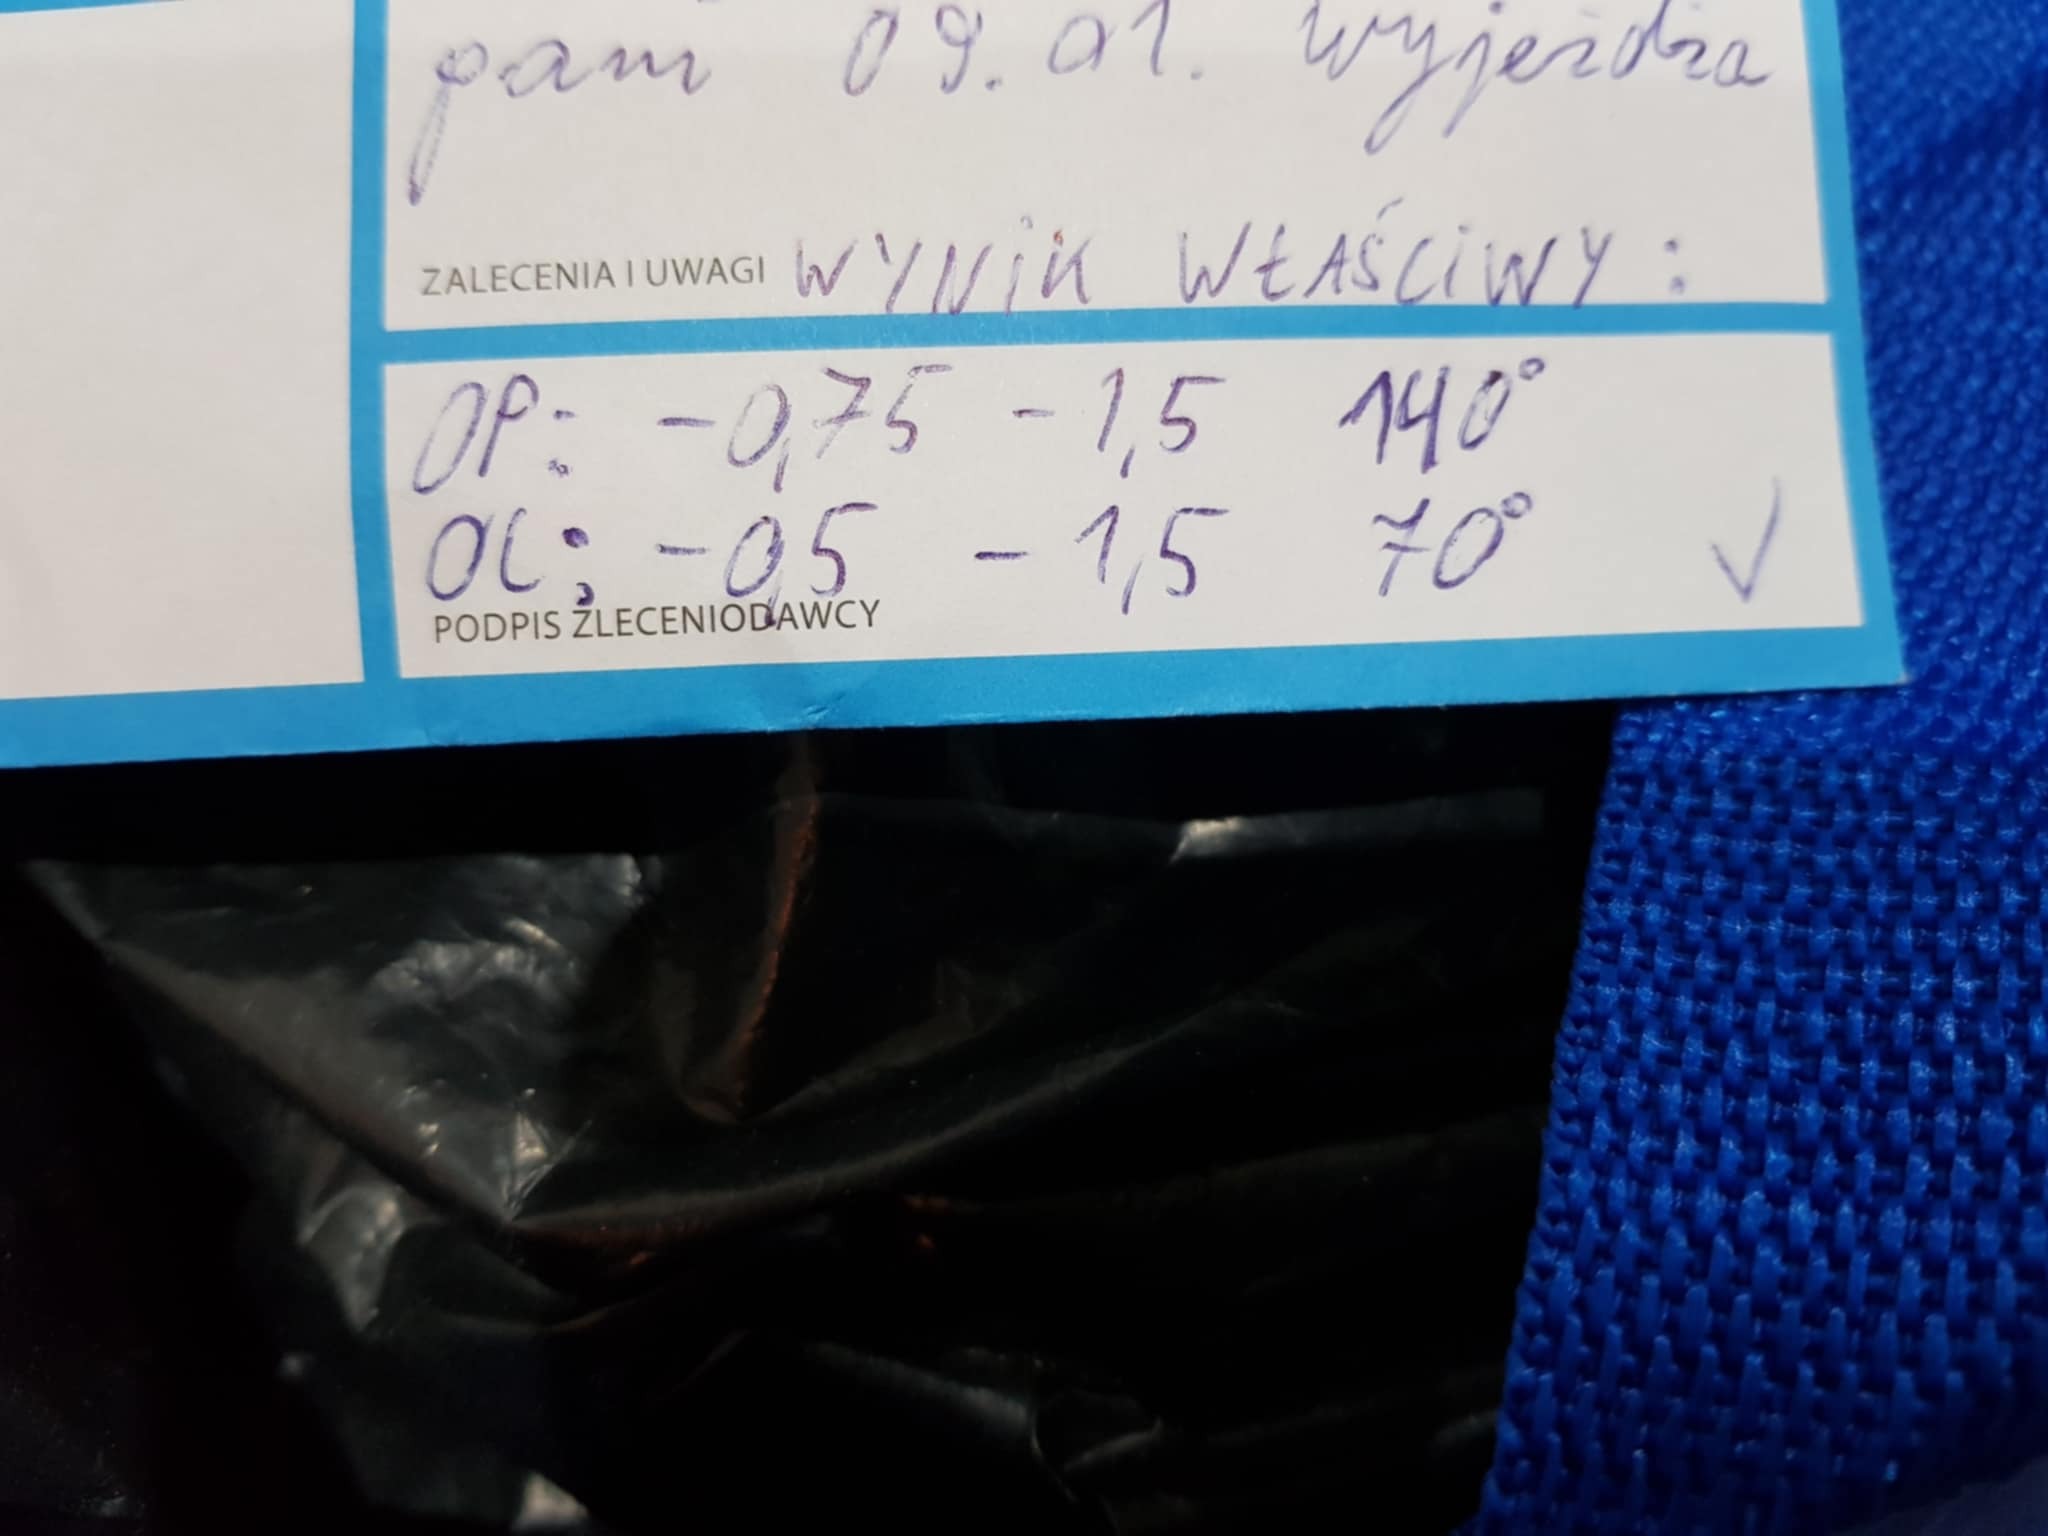 pani 09.01. wyjeżdża
ZALECENIA I UWAGI WYNIK WŁAŚCIWY:
OP: -0,75 -1,5 140°
OL: -0,5 -1,5 70°
PODPIS ZLECENIODAWCY